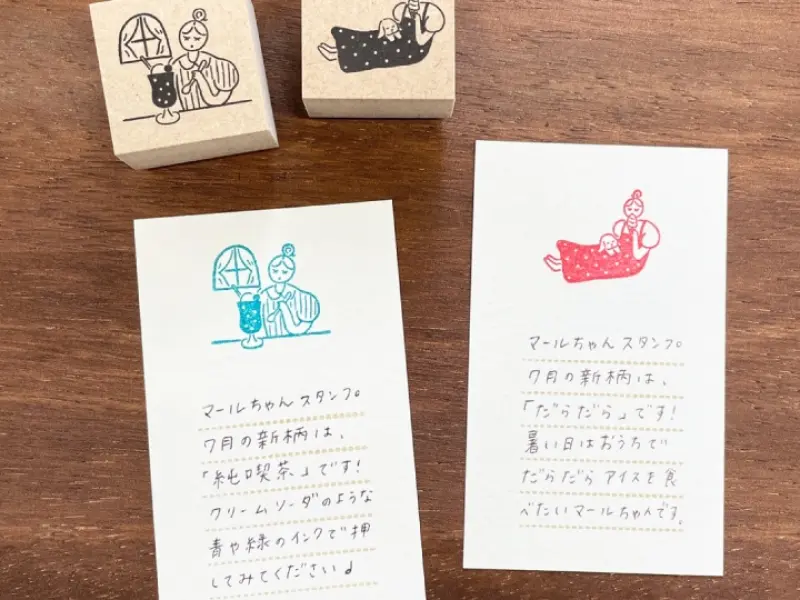 マールちゃんスタンプ。
7月の新柄は、
「純喫茶」です!
クリームソーダのような
青や緑のインクで押
してみてください♩
マールちゃんスタンプ。
7月の新柄は、
「だらだら」です!
暑い日はおうちで
だらだらアイスを食
べたいマールちゃんです。